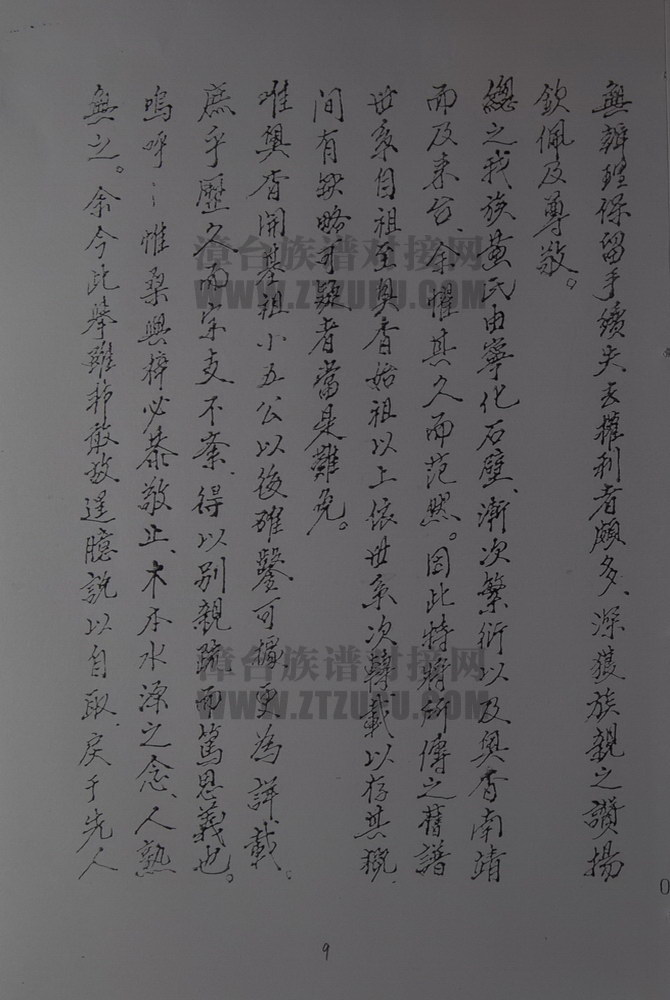 無辦理保留手續失去權利者頗多、深獲族親之讚揚
欽佩及尊敬。
總之我族黃氏由寧化石壁、漸次繁衍以及奧杳南靖
而及來台、余懼其久而范然。因此特將所傳之舊譜
世系自祖至奧杳始祖以上依世系次轉載以存其概.
间有缺略可疑者當是難免。
唯奧杳開基祖小五公以後確鑿可據、更為詳載。
庶乎歷久而宗支不紊、得以別親疏、而篤恩義也。
嗚呼：惟桑與梓必恭敬止、木本水源之念、人孰
無之。余今此舉雖非敢放逞臆說以自取、戾于先人
漳台族谱对接网
WWW.ZTZUPU.COM
漳台族谱对接网
WWW.ZTZUPU.COM
9
0